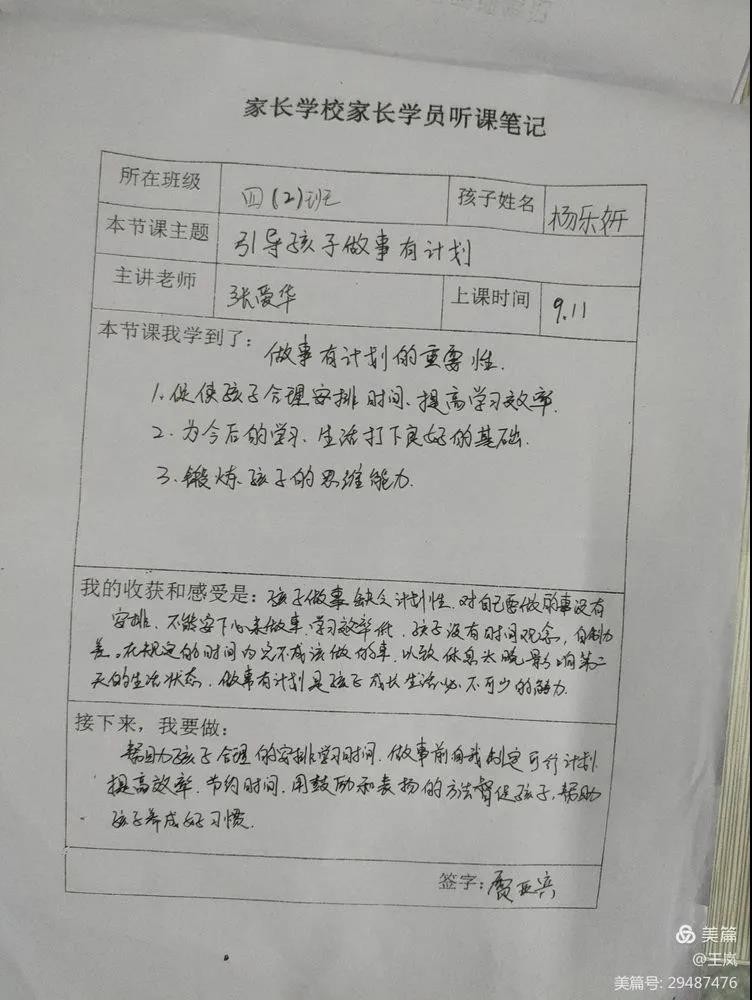 家长学校家长学员听课笔记
所在班级 四(2)班 孩子姓名 杨乐妍
本节课主题 引导孩子做事有计划
主讲老师 张爱华 上课时间 9.11
本节课我学到了: 做事有计划的重要性.
1. 促使孩子合理安排时间、提高学习效率.
2. 为今后的学习、生活打下良好的基础.
3. 锻炼孩子的思维能力.
我的收获和感受是: 孩子做事缺乏计划性. 对自己要做的事没有
安排. 不能安下心来做事. 学习效率低. 孩子没有时间观念, 自制力
差. 在规定的时间内完不成该做的事. 以致休息太晚影响第二
天的生活状态. 做事有计划是孩子成长生活必不可少的能力.
接下来,我要做:
帮助孩子合理的安排学习时间. 做事前自我制定可行计划.
提高效率. 节约时间. 用鼓励和表扬的方法督促孩子. 帮助
孩子养成好习惯.
签字:
美篇
@王岚
美篇号: 29487476